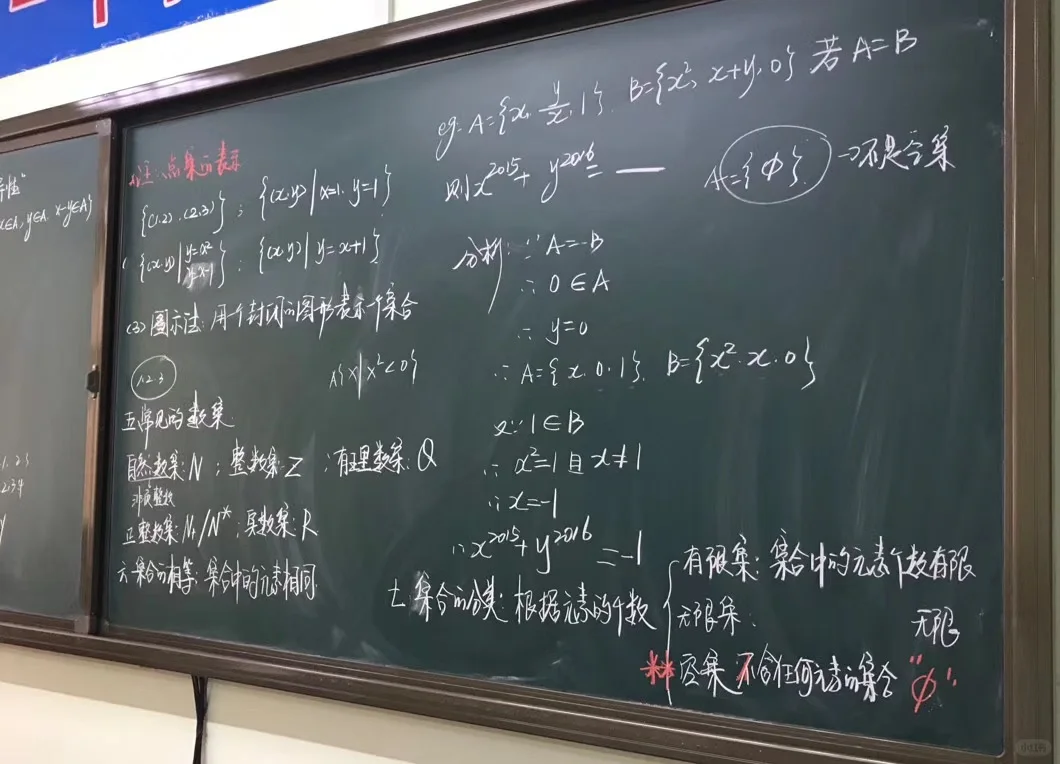 x∈A, y∈A, x-y∈A}
注:点集的表示
{(1.2).(2.3)} ; {(x.y)|x=1. y=1}
{(x.y)|y=x² y=x-1} ; {(x.y)|y=x+1}
(3)图示法:用一个封闭的图形表示一个集合
1.2.3
{x|x²<0}
五.常见的数集
自然数集:N ; 整数集:Z ; 有理数集:Q
非负整数
正整数集:N₊/N* ; 实数集:R
六.集合的相等:集合中的元素相同
eg: A={x, y/x, 1}. B={x², x+y, 0} 若A=B
则x²⁰¹⁵+y²⁰¹⁶=__
A={ϕ}. →不是空集
分析:∵A=B
∴0∈A
∴y=0
∴A={x.0.1}. B={x².x.0}
又∵1∈B
∴x²=1且x≠1
∴x=-1
∴x²⁰¹⁵+y²⁰¹⁶=-1
七.集合的分类:根据元素的个数
有限集:集合中的元素个数有限
无限集: 无限
**空集 不含任何元素的集合 "ϕ".
小红书